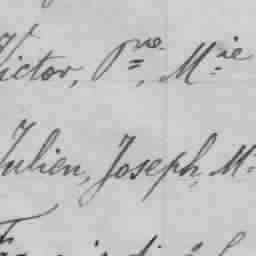 Victor, Pre, Mie
Julien, Joseph, M